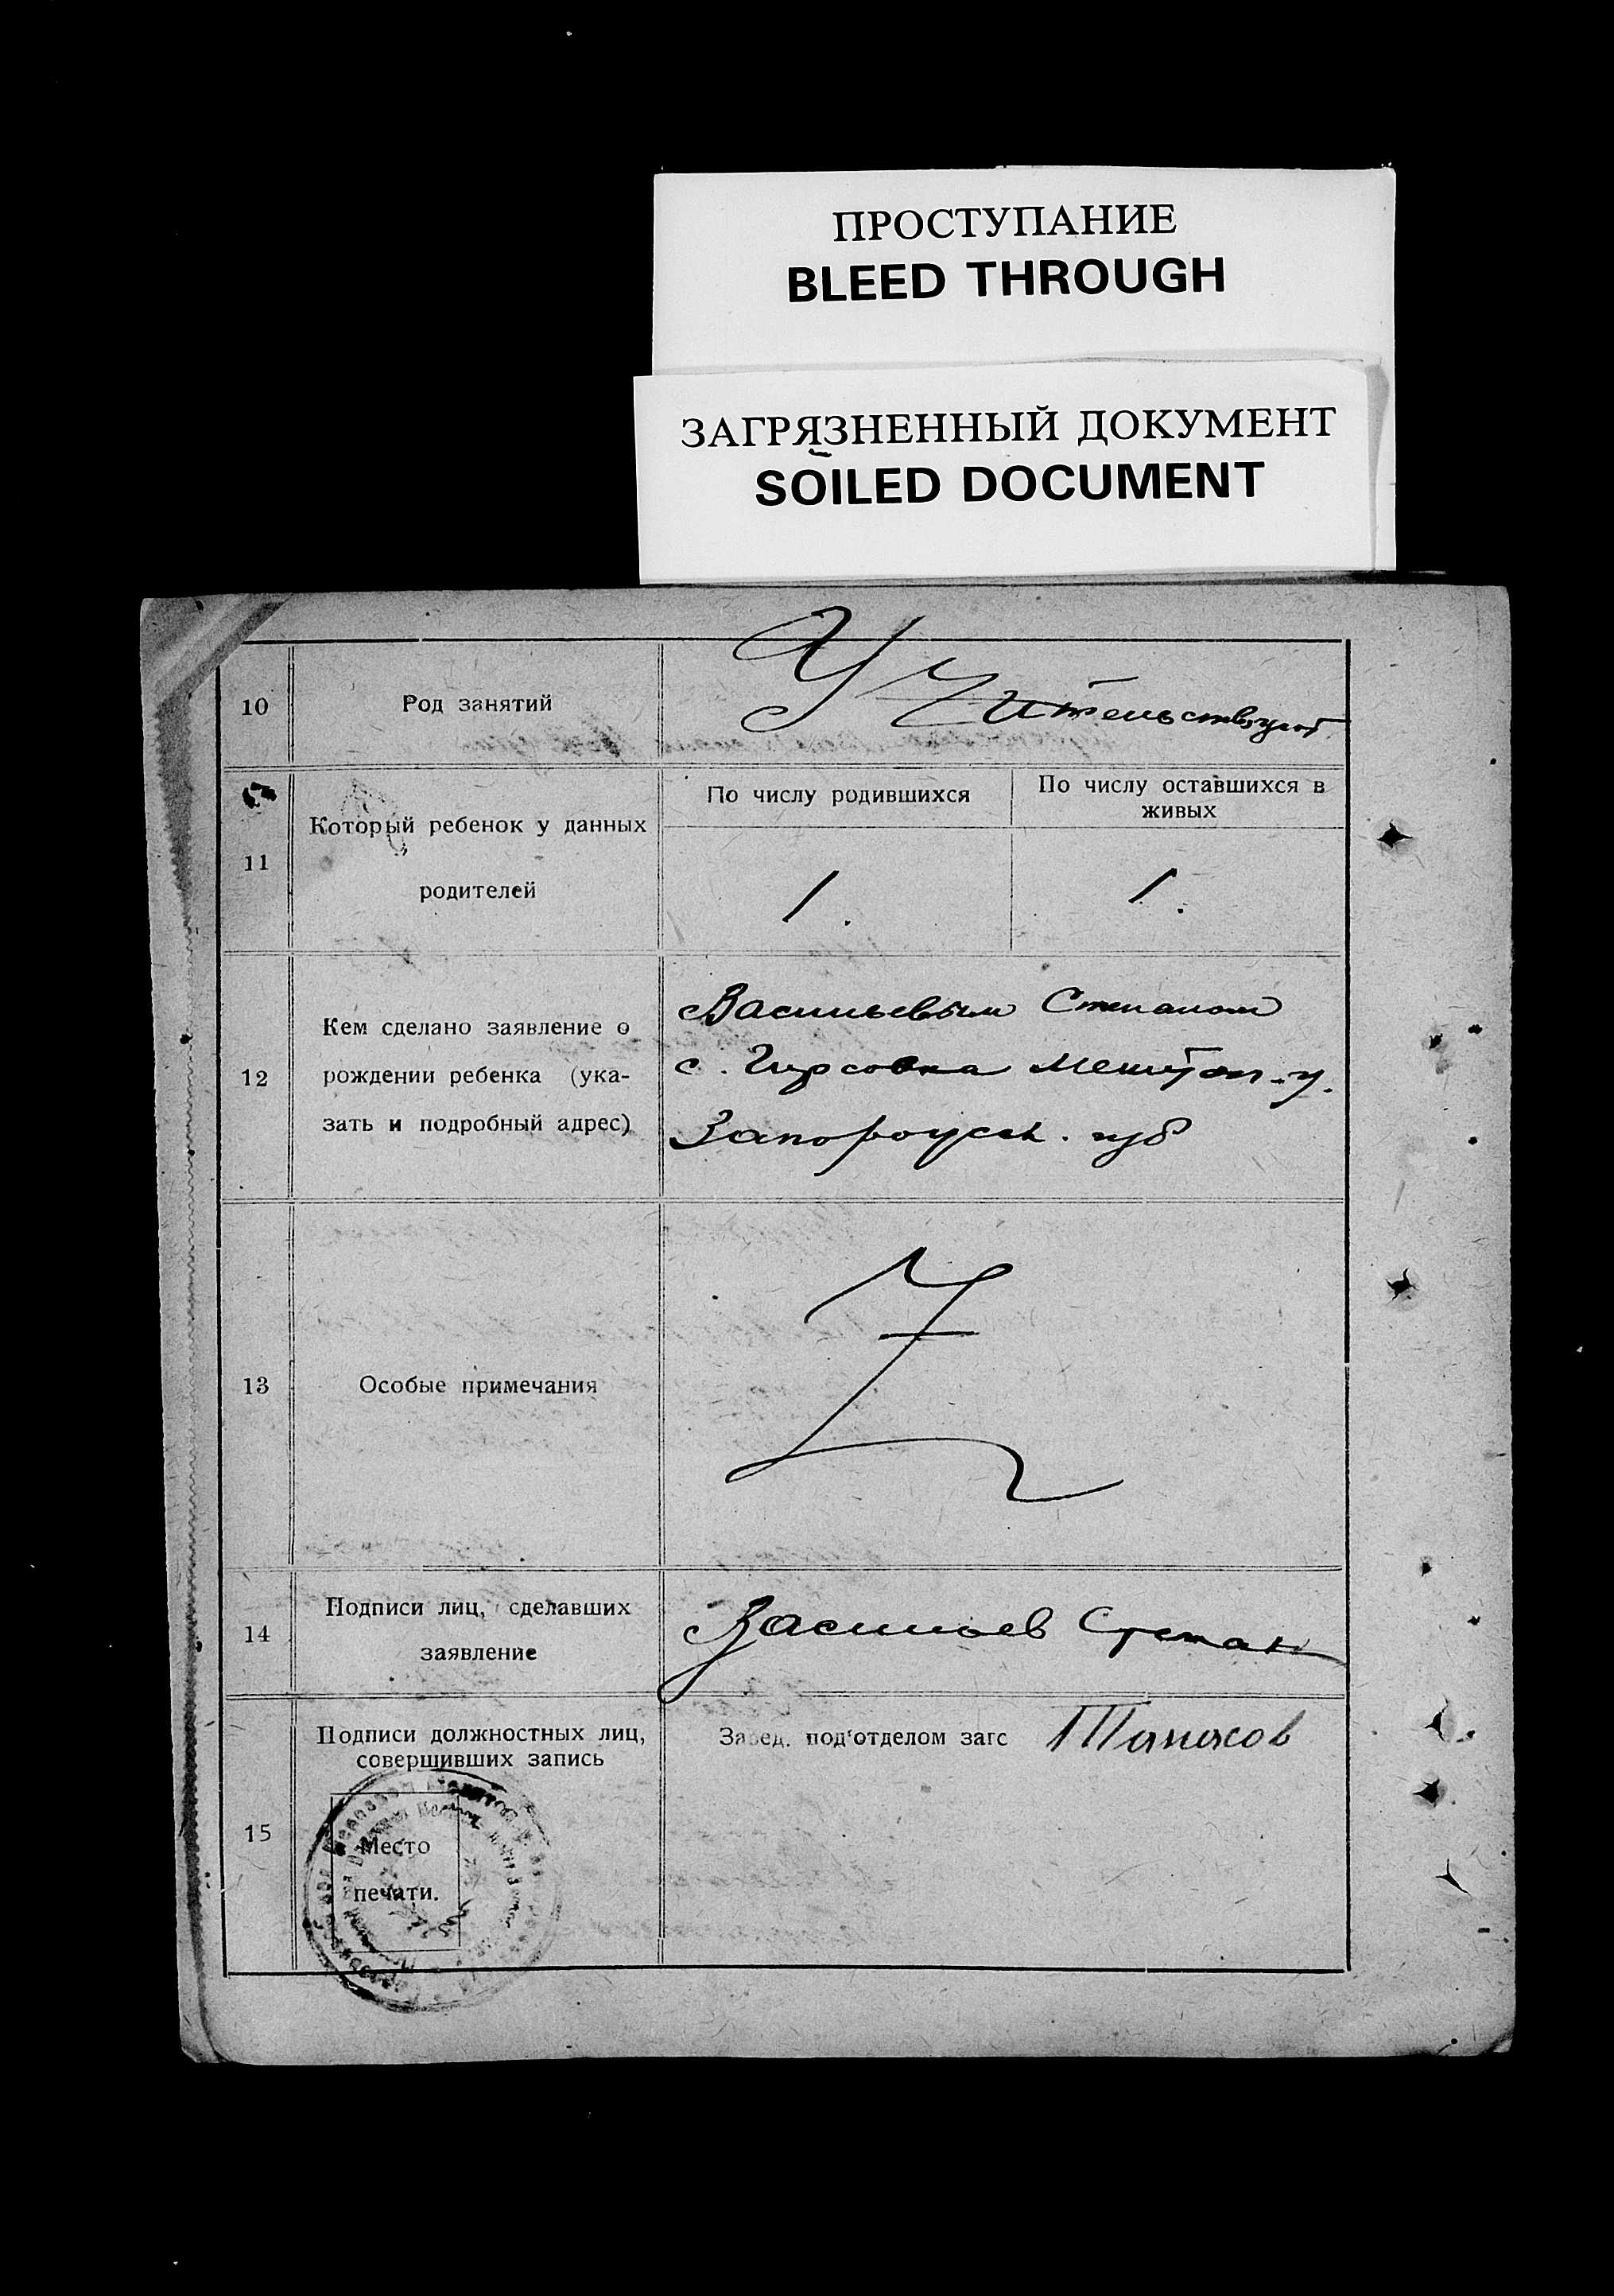 ПРОСТУПАНИЕ
BLEED THROUGH
ЗАГРЯЗНЕННЫЙ ДОКУМЕНТ
SOILED DOCUMENT
10
Род занятий
Учительствуют
11
Который ребенок у данных
родителей
По числу родившихся
По числу оставшихся в
живых
1.
1.
12
Кем сделано заявление о
рождении ребенка (ука-
зать и подробный адрес)
Васильевым Степаном
с. Гирсовка Мелитоп. у.
Запорожск. губ
13
Особые примечания
Z
14
Подписи лиц, сделавших
заявление
Васильев Степан
15
Подписи должностных лиц,
совершивших запись
Место
печати.
Завед. под'отделом загс
Танасов